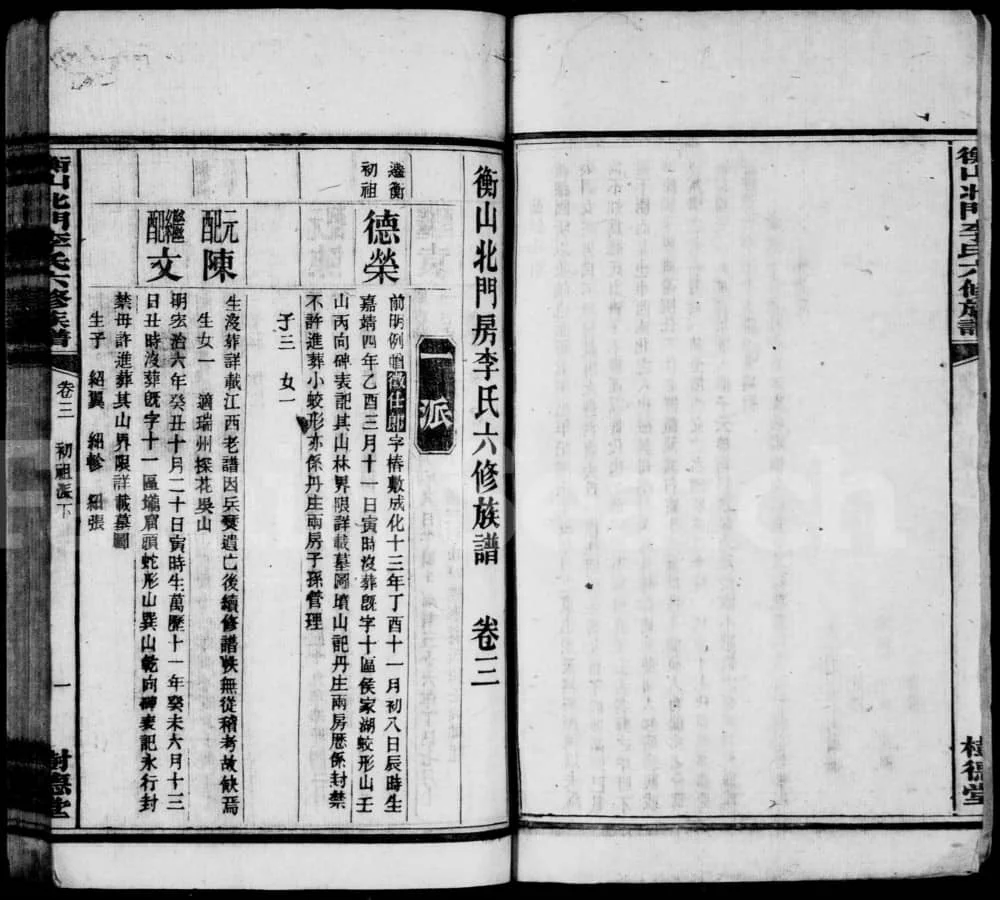 衡山北門李氏六修族譜
樹德堂
衡山北門房李氏六修族譜 卷三
一派
遷衡初祖
德榮
前明例贈徵仕郎字椿敷成化十三年丁酉十一月初八日辰時生
嘉靖四年乙酉三月十一日寅時沒葬旣字十區侯家湖蛟形山壬
山丙向碑表記其山林界限詳載墓圖墳山記丹庄兩房歷係封禁
不許進葬小蛟形亦係丹庄兩房子孫管理
子三 女一
元配陳
生沒葬詳載江西老譜因兵燹遺亡後續修譜帙無從稽考故缺焉
生女一 適瑞州探花吳山
繼配文
明宏治六年癸丑十月二十日寅時生萬歷十一年癸未六月十三
日丑時沒葬旣字十一區壠窟頭蛇形山巽山乾向碑表記永行封
禁毋許進葬其山界限詳載墓圖
生子 紹翼 紹軫 紹張
衡山北門李氏六修族譜
卷三 初祖派下
一
樹德堂